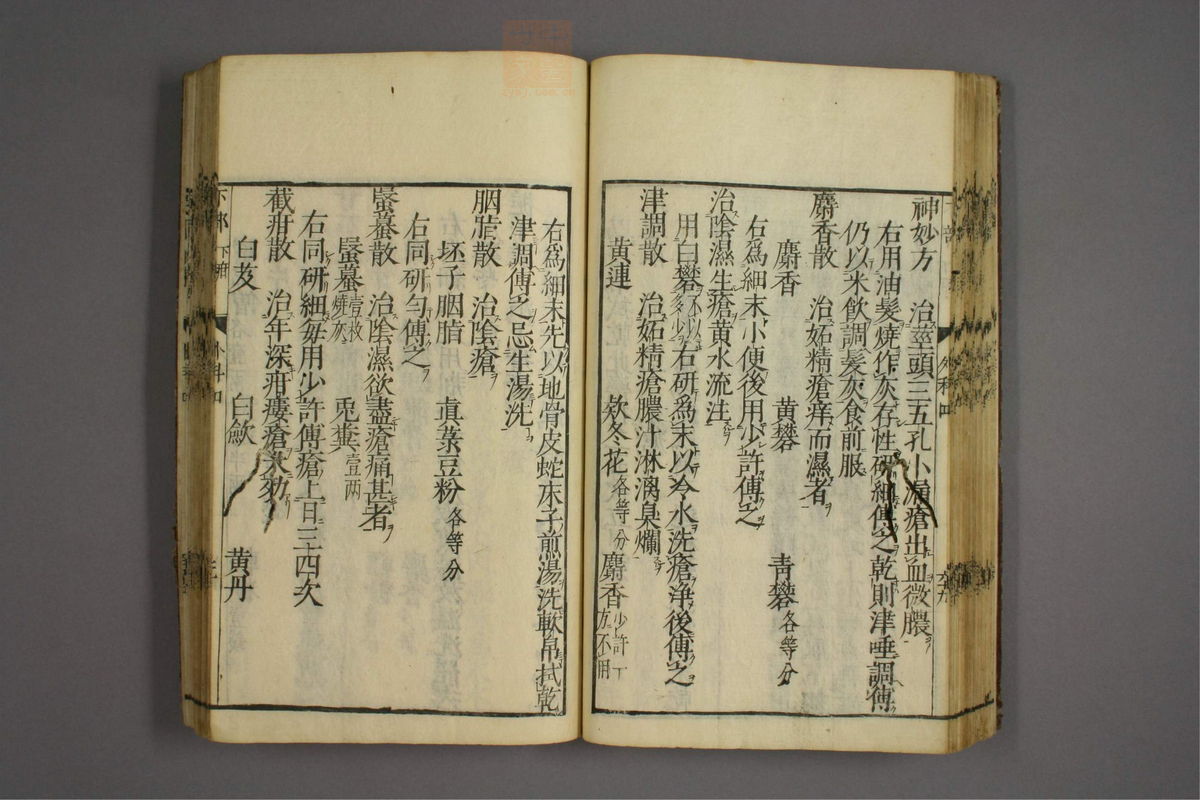 神妙方　治莖頭三五孔小漏瘡出血微膿
右用油髮燒作灰存性研細傅之乾則津唾調傅
仍以米飲調髮灰食前服
麝香散　治妬精瘡痒而濕者
麝香　黄礬　青礬各等分
右爲細末小便後用少許傅之
治陰濕生瘡黄水流注
用白礬不以多少右研爲末以冷水洗瘡淨後傅之
津調散　治妬精瘡膿汁淋漓臭爛
黄連　欵冬花各等分　麝香少許一方不用
右爲細末先以地骨皮蛇床子煎湯洗軟帛拭乾
津調傅之忌生湯洗
胭脂散　治陰瘡
坯子胭脂　眞菉豆粉各等分
右同研匀傅之
蝦蟇散　治陰濕欲盡瘡痛甚者
蝦蟇壹枚燒灰　兎糞壹两
右同研細毎用少許傅瘡上日三四次
截疳散　治年深疳瘻瘡大効
白芨　白歛　黄丹